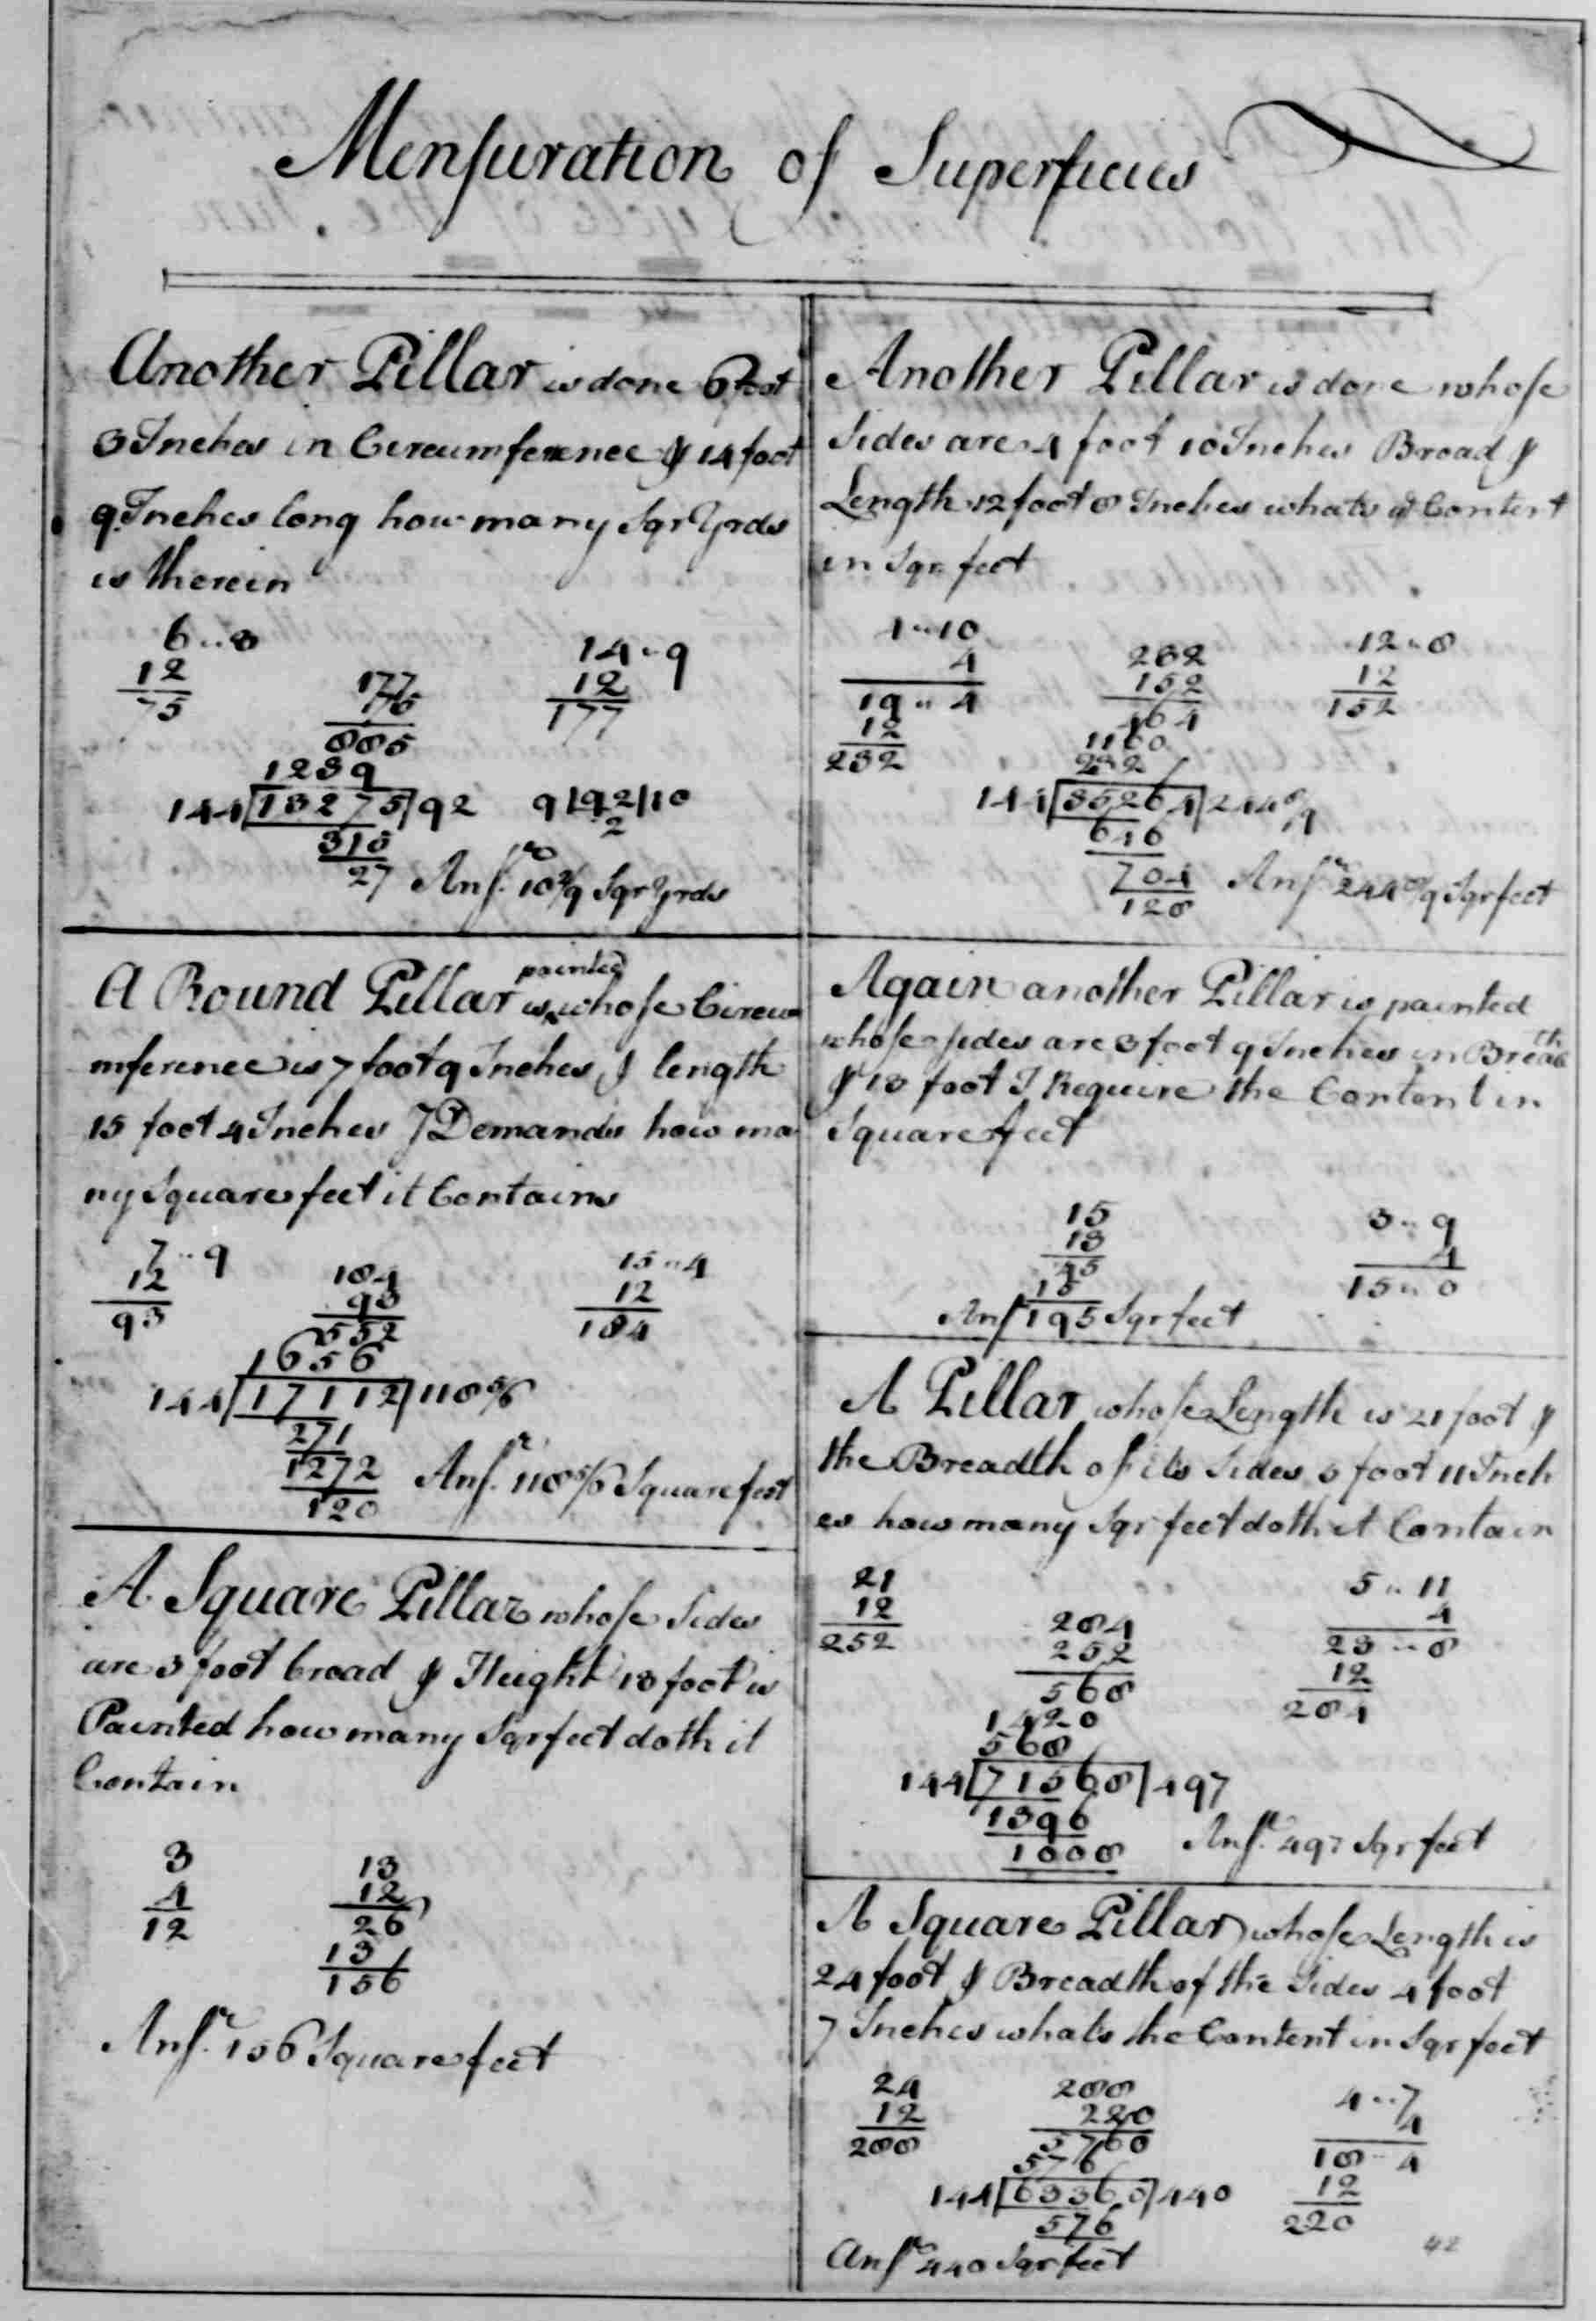 Mensuration of Superficies
Another Pillar is done 6 foot
3 Inches in Circumference & 14 foot
9 Inches long how many Sqr Yrds
is therein
6 .. 3
12
75
177
75
885
1239
144 | 13275 | 92
315
27
14 .. 9
12
177
9 | 92 | 10
2
Ansr. 10 2/9 Sqr Yrds
A Round Pillar is painted whose Circu
mference is 7 foot 9 Inches & length
15 foot 4 Inches I Demande how ma
ny Square feet it Contains
7 .. 9
12
93
184
93
552
1656
144 | 17112 | 118 5/6
271
1272
120
15 .. 4
12
184
Ansr. 118 5/6 Square feet
A Square Pillar whose Sides
are 3 foot broad & Height 13 foot is
Painted how many Sqr feet doth it
Contain
3
4
12
13
12
26
13
156
Ansr. 156 Square feet
Another Pillar is done whose
Sides are 4 foot 10 Inches Broad &
Length 12 foot 8 Inches whats ye Content
in Sqr feet
4 .. 10
4
19 .. 4
12
232
232
152
464
1160
232
144 | 35264 | 244 8/9
646
704
128
12 .. 8
12
152
Ansr 244 8/9 Sqr feet
Again another Pillar is painted
whose sides are 3 foot 9 Inches in Breadth
& 13 foot I Require the Content in
Square feet
15
13
45
15
Ansr 195 Sqr feet
3 .. 9
4
15 .. 0
A Pillar whose Length is 21 foot &
the Breadth of its Sides 5 foot 11 Inch
es how many Sqr feet doth it Contain
21
12
252
284
252
568
1420
568
144 | 71568 | 497
1396
1008
5 .. 11
4
23 .. 8
12
284
Ansr. 497 Sqr feet
A Square Pillar whose Length is
24 foot & Breadth of the Sides 4 foot
7 Inches whats the Content in Sqr feet
24
12
288
288
220
5760
576
144 | 63360 | 440
576
4 .. 7
4
18 .. 4
12
220
Ansr 440 Sqr feet
42